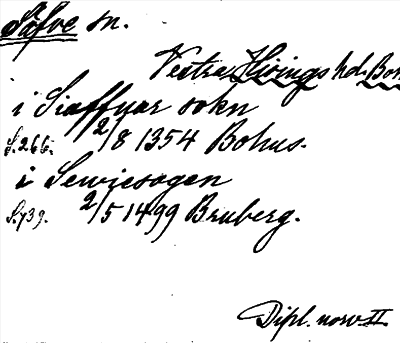 Säfve sn.
Vestra Hisings hd. Boh
i Siaffuar sokn
S. 266. 2/8 1354 Bohus.
i Sewiesogen
S. 739. 2/5 1499 Bruberg.
Dipl. norv. II.